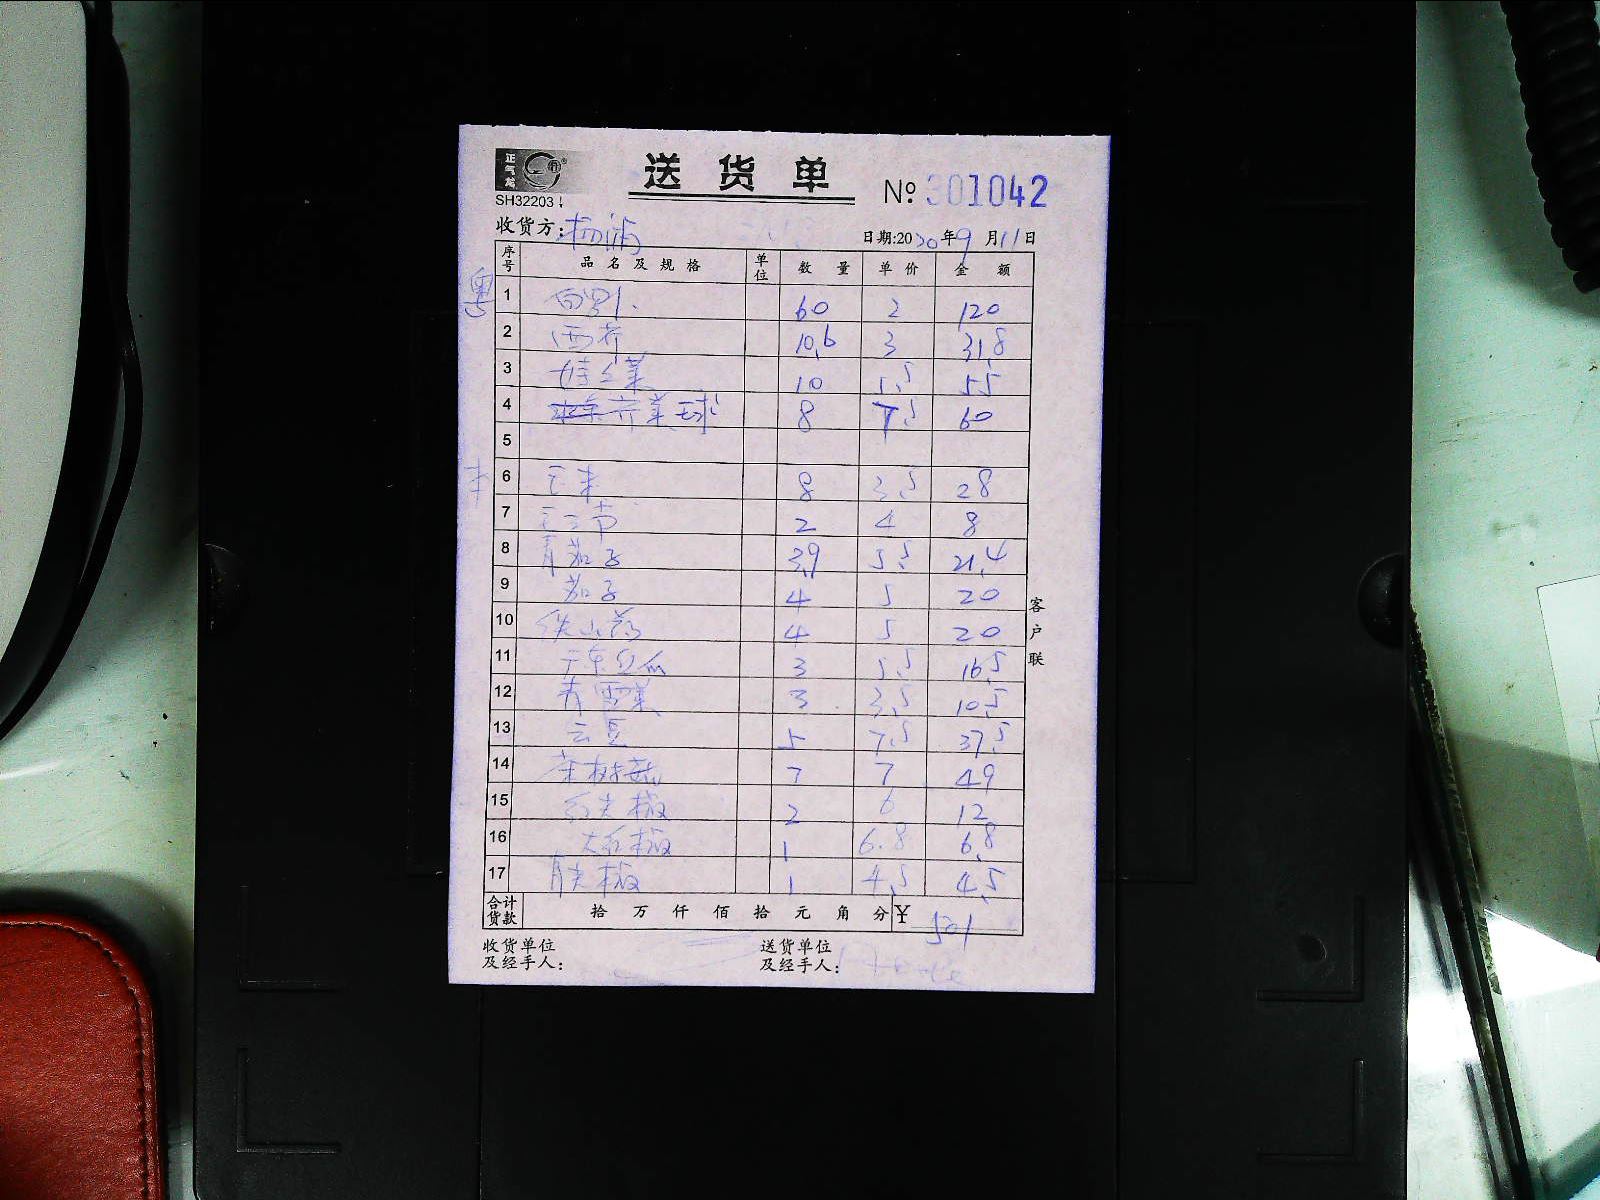 正气龙
送货单
SH32203
No: 301042
收货方: 杨浦
日期:2020年9月11日
序号 品名及规格 单位 数量 单价 金额
粤
1 60 2 120
2 西芹 10.6 3 31.8
3 娃娃菜 10 5.5 55
4 芥菜球 8 7.5 60
5
6 玉米 8 3.5 28
7 2 4 8
8 青茄子 3.9 5.5 21.4
9 茄子 4 5 20
10 铁山药 4 5 20
11 3 5.5 16.5
12 3 3.5 10.5
13 云豆 5 7.5 37.5
14 茶树菇 7 7 49
15 红尖椒 2 6 12
16 大红椒 1 6.8 6.8
17 青尖椒 1 4.5 4.5
客户联
合计货款 拾 万 仟 佰 拾 元 角 分 ¥ 501
收货单位及经手人:
送货单位及经手人: